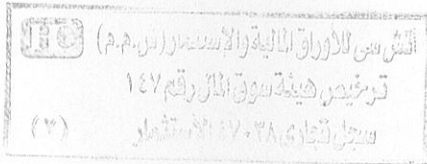 اتش سي للاوراق المالية والاستثمار (ش.م.م)
ترخيص هيئة سوق المال رقم ١٤٧
سجل تجاري ٤٧٠٣٨ الاستثمار (٣)